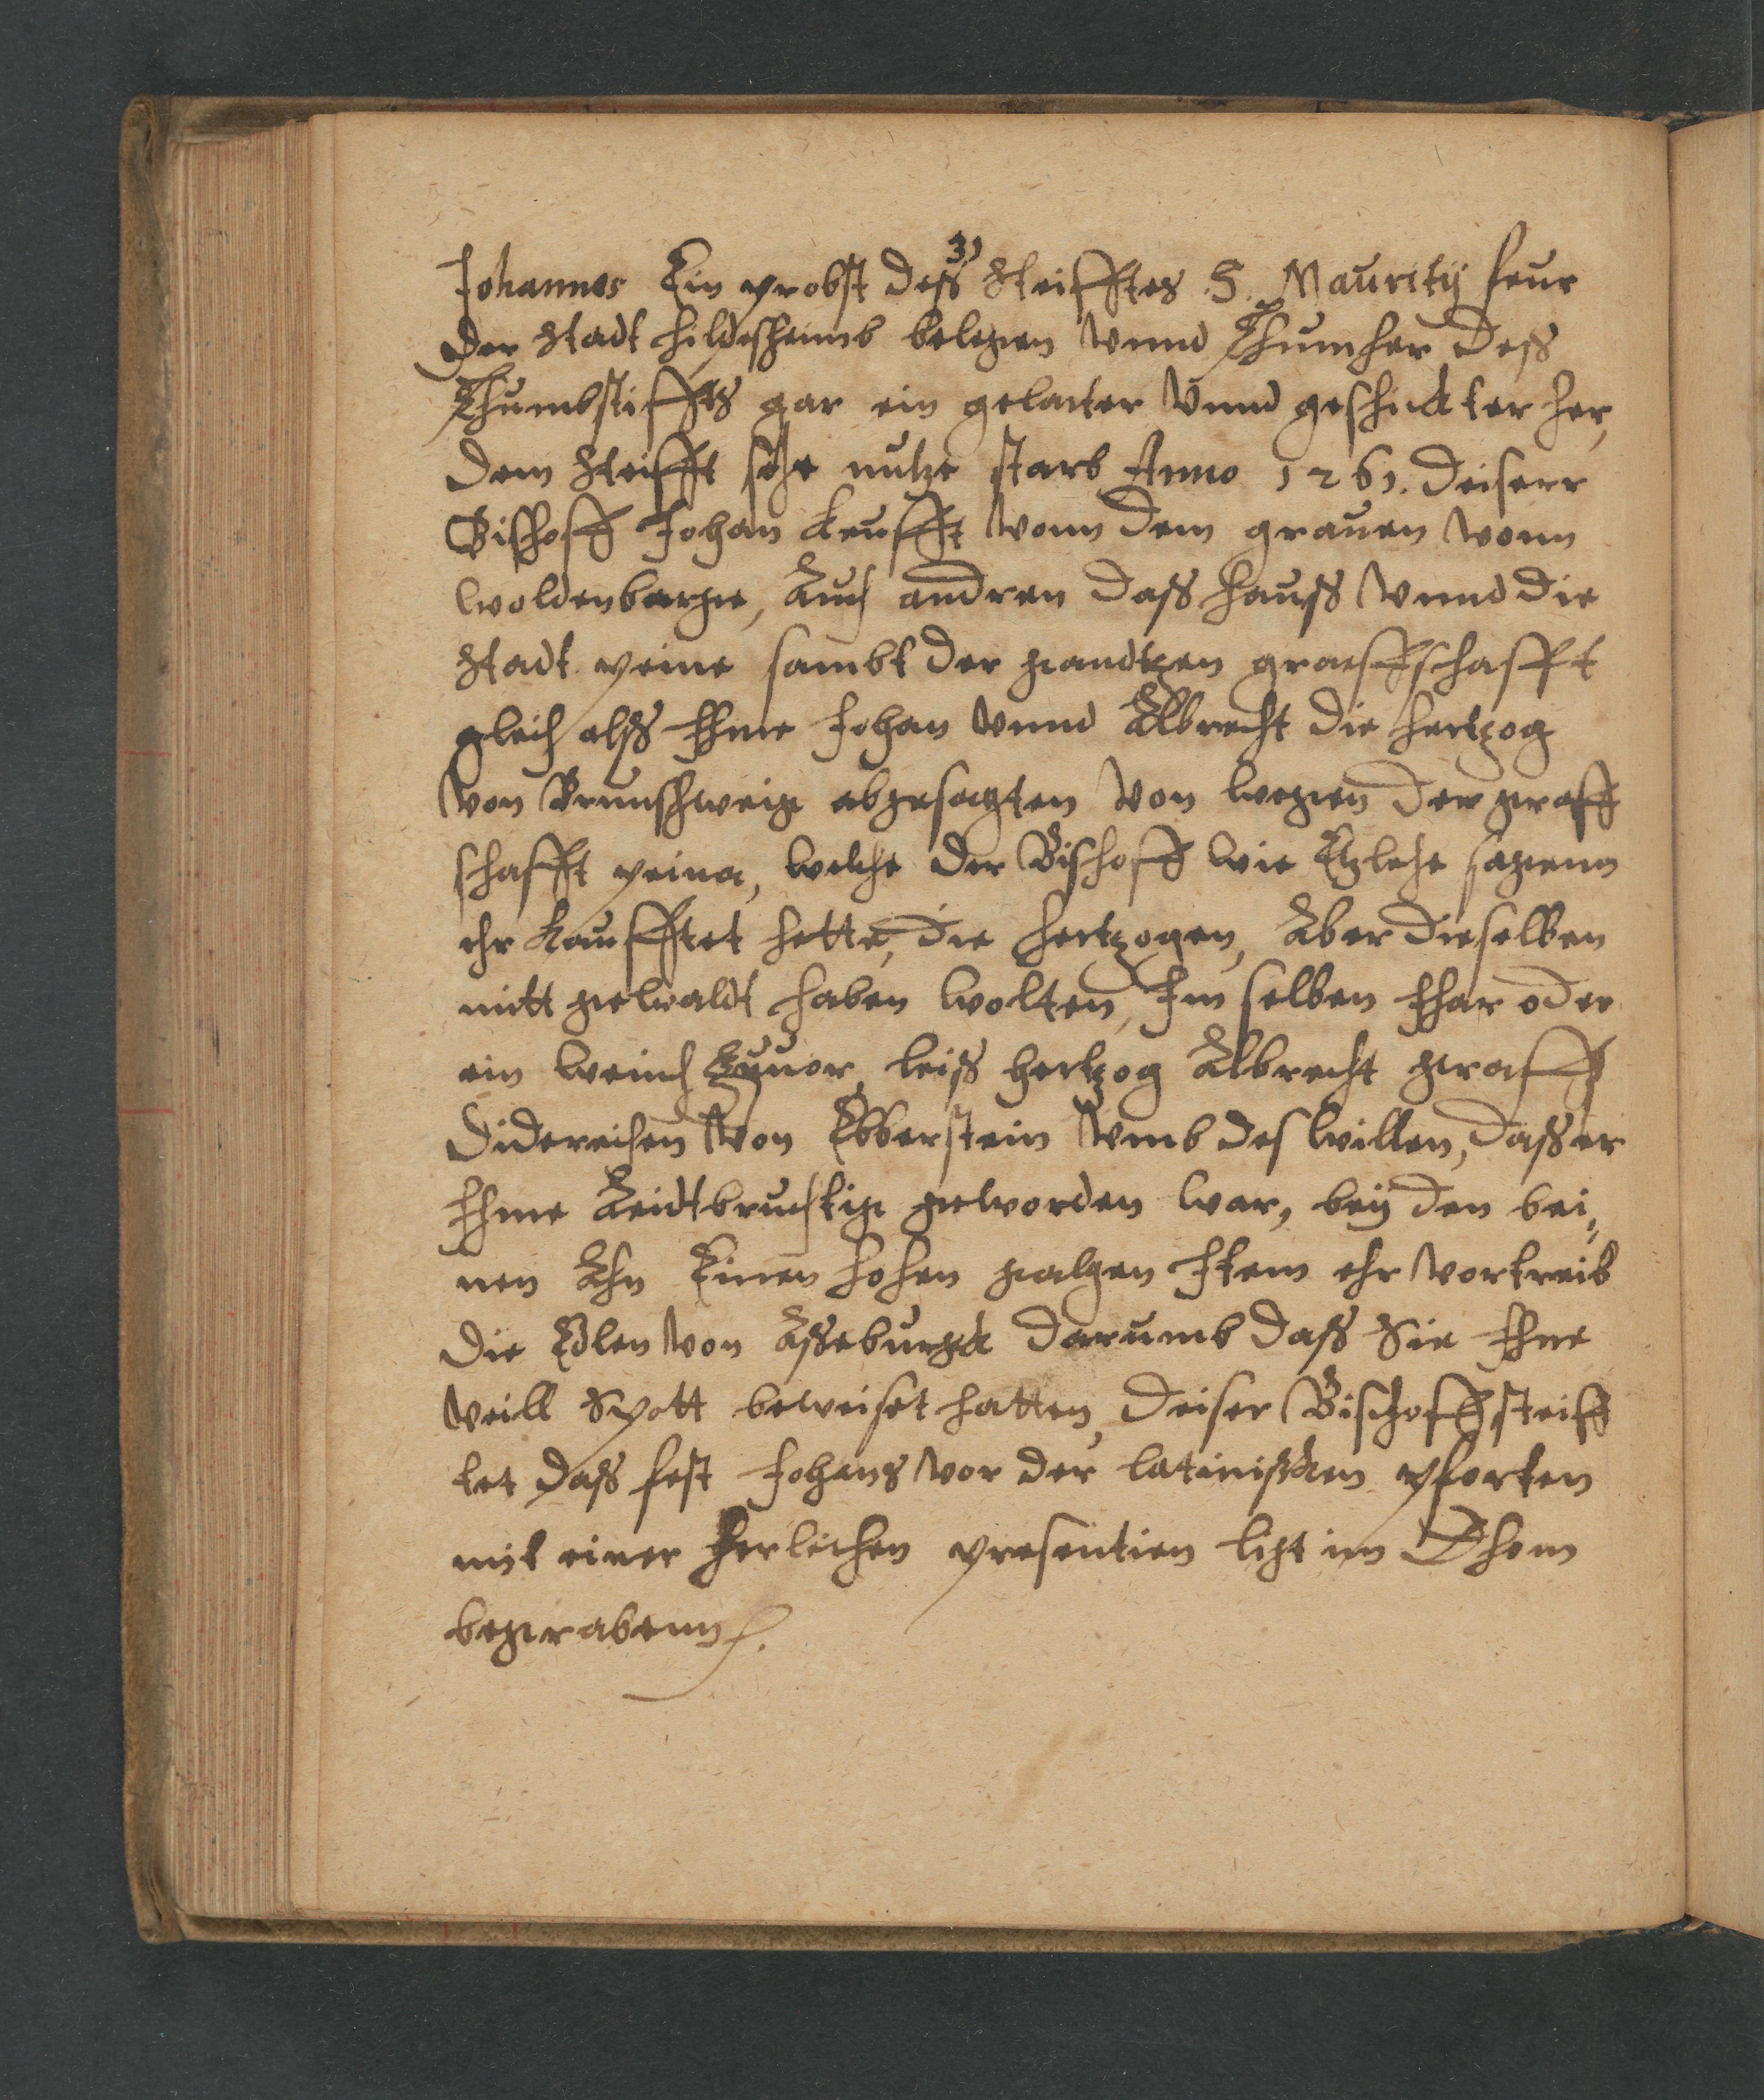 3)
Johannes Ein probst deß Steifftes S. Maurity feur
der Stadt Hildesheimb belegen vnnd Thumher deß
Thumbstiffts gar ein gelarter vnnd geschickter Her,
dem Steifft sehr nutze starb Anno 1261. deiserr
Bischoff Johan keufft vonn dem grauen vonn
woldenberge, Auch andren daß Hauß vnnd die
Stadt peine sambt der gandtzen graeffschafft
gleich alß Ihme Johan vnnd Albrecht die Hertzog
von Brunschweig abgesagten von wegen der graff
schafft peina, welche der Bischoff wie Etzlche sagenn
ehr kaufftet hette, die Hertzogen, Aber dieselben
mitt gewaldt haben wolten, Im selben Ihar oder
ein wenich Zuuor, leiß Hertzog Albrecht graff
Didereichen von Ebberstein vmb des willen, daß er
Ihme Eeidtbruchtig geworden war, bey den bei,
nen Ahn Einen hohen galgen Item ehr vortreib
die Edlen von Aßeburgk darumb daß Sie Ihne
veill Spott beweiset hatten, deiser Bischoff steiff
tet daß fest Johans vor der latinischen pforten
mit einer herlichen presentien ligt im Dhom
begrabenn.